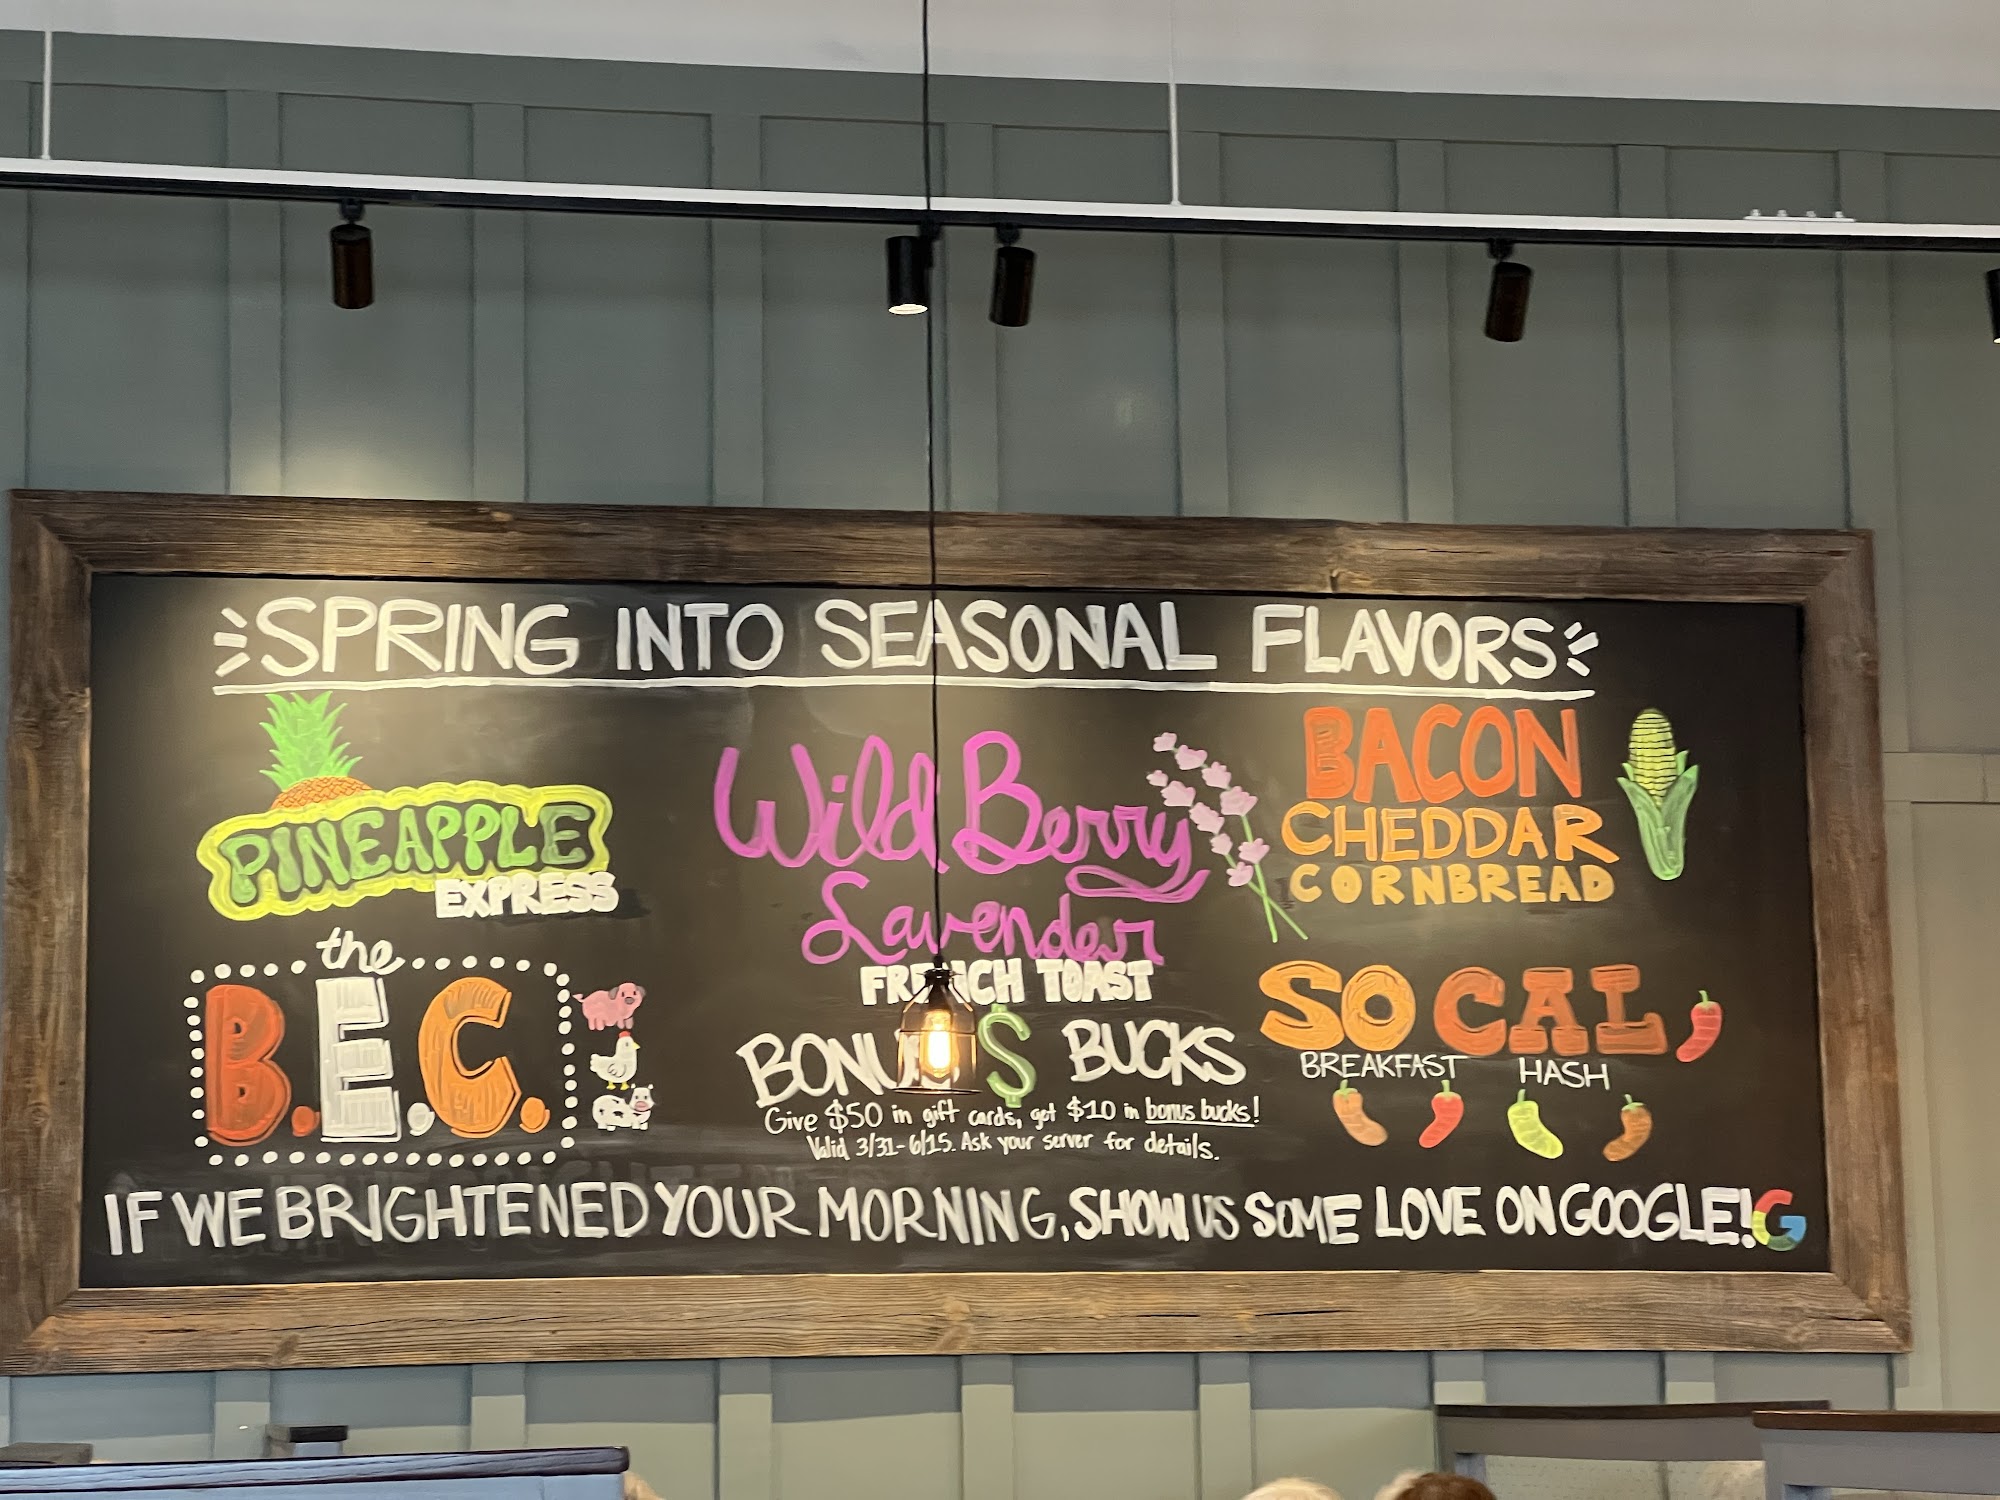 SPRING INTO SEASONAL FLAVORS
PINEAPPLE
EXPRESS
the
B.E.C.
Wild Berry
Lavender
FRENCH TOAST
BONUS $ BUCKS
Give $50 in gift cards, get $10 in bonus bucks!
Valid 3/31-6/15. Ask your server for details.
BACON
CHEDDAR
CORNBREAD
SO CAL
BREAKFAST HASH
IF WE BRIGHTENED YOUR MORNING, SHOW US SOME LOVE ON GOOGLE! G